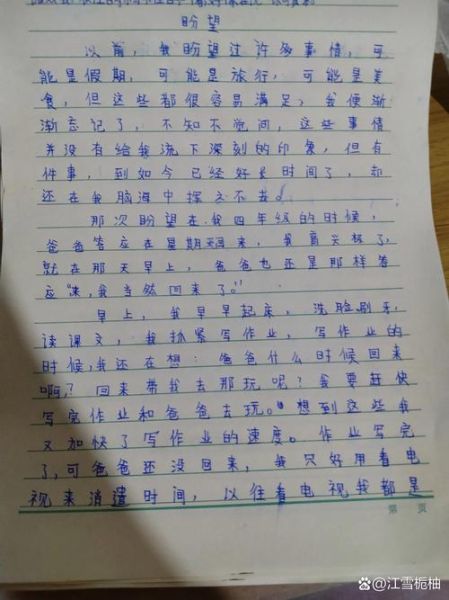 盼望
以前，我盼望过许多事情，可
能是假期，可能是旅行，可能是美
食，但这些都很容易满足，我便渐
渐忘记了，不知不觉间，这些事情
并没有给我流下深刻的印象，但有
件事，到如今已经好长时间了，却
还在我脑海中挥之不去。
那次盼望在我四年级的时候，
爸爸答应在星期天回来，我高兴极了，
就在那天早上，爸爸也还是那样答
应“来，我当然回来了。”
早上，我早早起床，洗脸刷牙，
读课文，我抓紧写作业，写作业的
时候，我还在想：爸爸什么时候回来
啊？回来带我去那玩呢？我要赶快
写完作业和爸爸去玩。想到这些我
又加快了写作业的速度。作业写完
了，可爸爸还没回来，我只好用看电
视来消遣时间，以往看电视我都是
第 页
@江雪栀柚